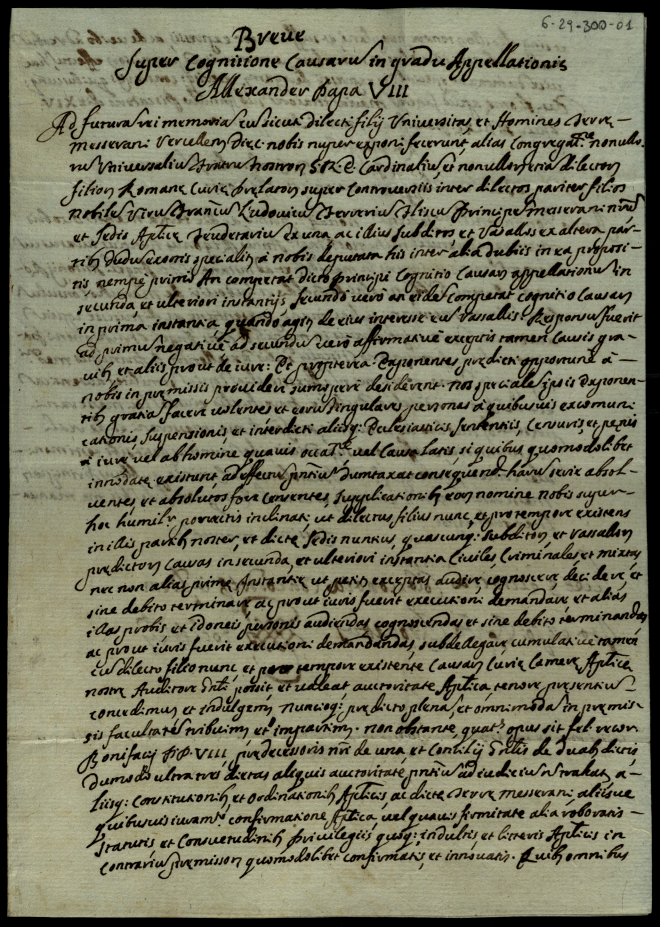 6-29-300-01
Breve
super Cognitione Causarũ in gradu Appellationis
Allexander Papa VIII
Ad futurã rei memoriã cũ sicut dilecti filij Universitas, et Homines Terre
Messerani Vercellen Diec: nobis nuper exponi fecerunt, alias Congregat.ne nonullo-
rũ Veneralibiũ fratrũ nostron S.R.E. Cardinaliũ, et nonullon etiã dilecton
filion Romane Curie Prelaton super Controversiis inter dilectos pariter filios
nobilẽ Virũ Ludovicũ Ferreriũ Fliscũ Principẽ Messerani
et Sedis Aplice feudetariũ ex una, ac illius subditos, et Vasallos ex altera par-
tib deductis à nobis deputata his inter alia dubiis in ea proposi-
tis nempe primò An competat dicto Principi Cognitio Causan appellationũ in
secunda, et ulteriori instantijs, secundò verò an eidẽ Competat cognitio Causan
in prima instantia, quando agin de eius interesse cũ Vassallis Responsũ fuerit
ad primũ negativè, ad secundũ verò affirmativè exceptis tamen Causis gra-
vib et aliis prout de iure: Et propterea Exponentes predicti opportunè à
nobis in premissis provideri sumopere desiderent. Nos speciale ipsis Exponen-
tib gratiã facere volentes et eorũ singulares personas à quibusvis excomuni
cationis, suspensionis, et interdicti, aliisq: Ecclesiasticis sententiis, Censuris, et penis
à iure vel ab homine quavis occat.e vel Causa latis, si quibus quomodolibet
innodate existunt, ad effectũ pntiũ dumtaxat consequend. harũ serie absol-
ventes, et absolutos fore censentes, supplicationib eon nomine nobis super
hoc humilr porrectis inclinati, ut dilectus filius nunc, et pro tempore existens
in illis partib noster, et dicte Sedis nuntius quascunq: subditon, et Vassallon
predicton Causas in secunda, et ulteriori instantia Civiles, Criminales, et mixtas
nec non alias prime Instantie, ut petit exceptas audire, cognoscere, decidere, et
sine debito terminare, ac prout iuris fuerit executioni demandare, et alias
illas probis et idoneis personis audiendas, cognoscendas, et sine debito terminandas
ac prout iuris fuerit executioni demandandas, subdelegare cumulativè tamen
cũ dilecto filio nunc, et pro tempore existente Causan Curie Camere Aplice
nostre Auditore Gnli possit, et valeat, auctoritate Aplica, tenore presentiũ
concedimus, et indulgem, nuncioq: predicto plenã, et omnimodã in premis-
sis facultatẽ tribuimus, et impartim. non obstante, quat.s opus sit fel: recor.
Bonifacij PP. VIII. predecessoris nri de una, et Concilij Gnlis de duab dietis
dumodo ultra tres dietas aliquis auctoritate pntiũ ad iudiciũ nõ trahat, a-
liisq: Constitutionib et Ordinationib Aplicis, ac dicte Terre Messerani, aliisve
quibusvis iuramto, confirmatione Aplica, vel quavis firmitate alia roboratis
statutis, et Consuetudinib, Privilegiis quoq: indultis, et litteris Aplicis in
contrariũ premisson quomodolibet confirmatis, et innovatis. Quib omnibus